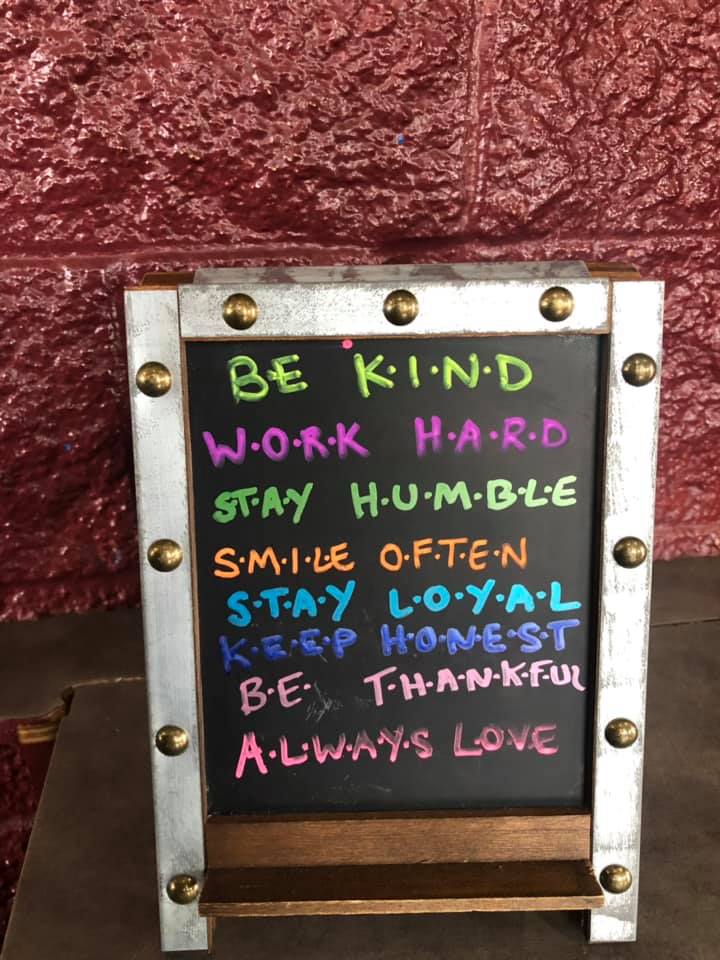 BE K·I·N·D
W·O·R·K H·A·R·D
ST·A·Y H·U·M·B·L·E
S·M·I·LE O·F·T·E·N
S·T·A·Y L·O·Y·A·L
K·E·E·P H·O·N·E·S·T
B·E· T·H·A·N·K·F·UL
A·L·W·A·Y·S LO·V·E